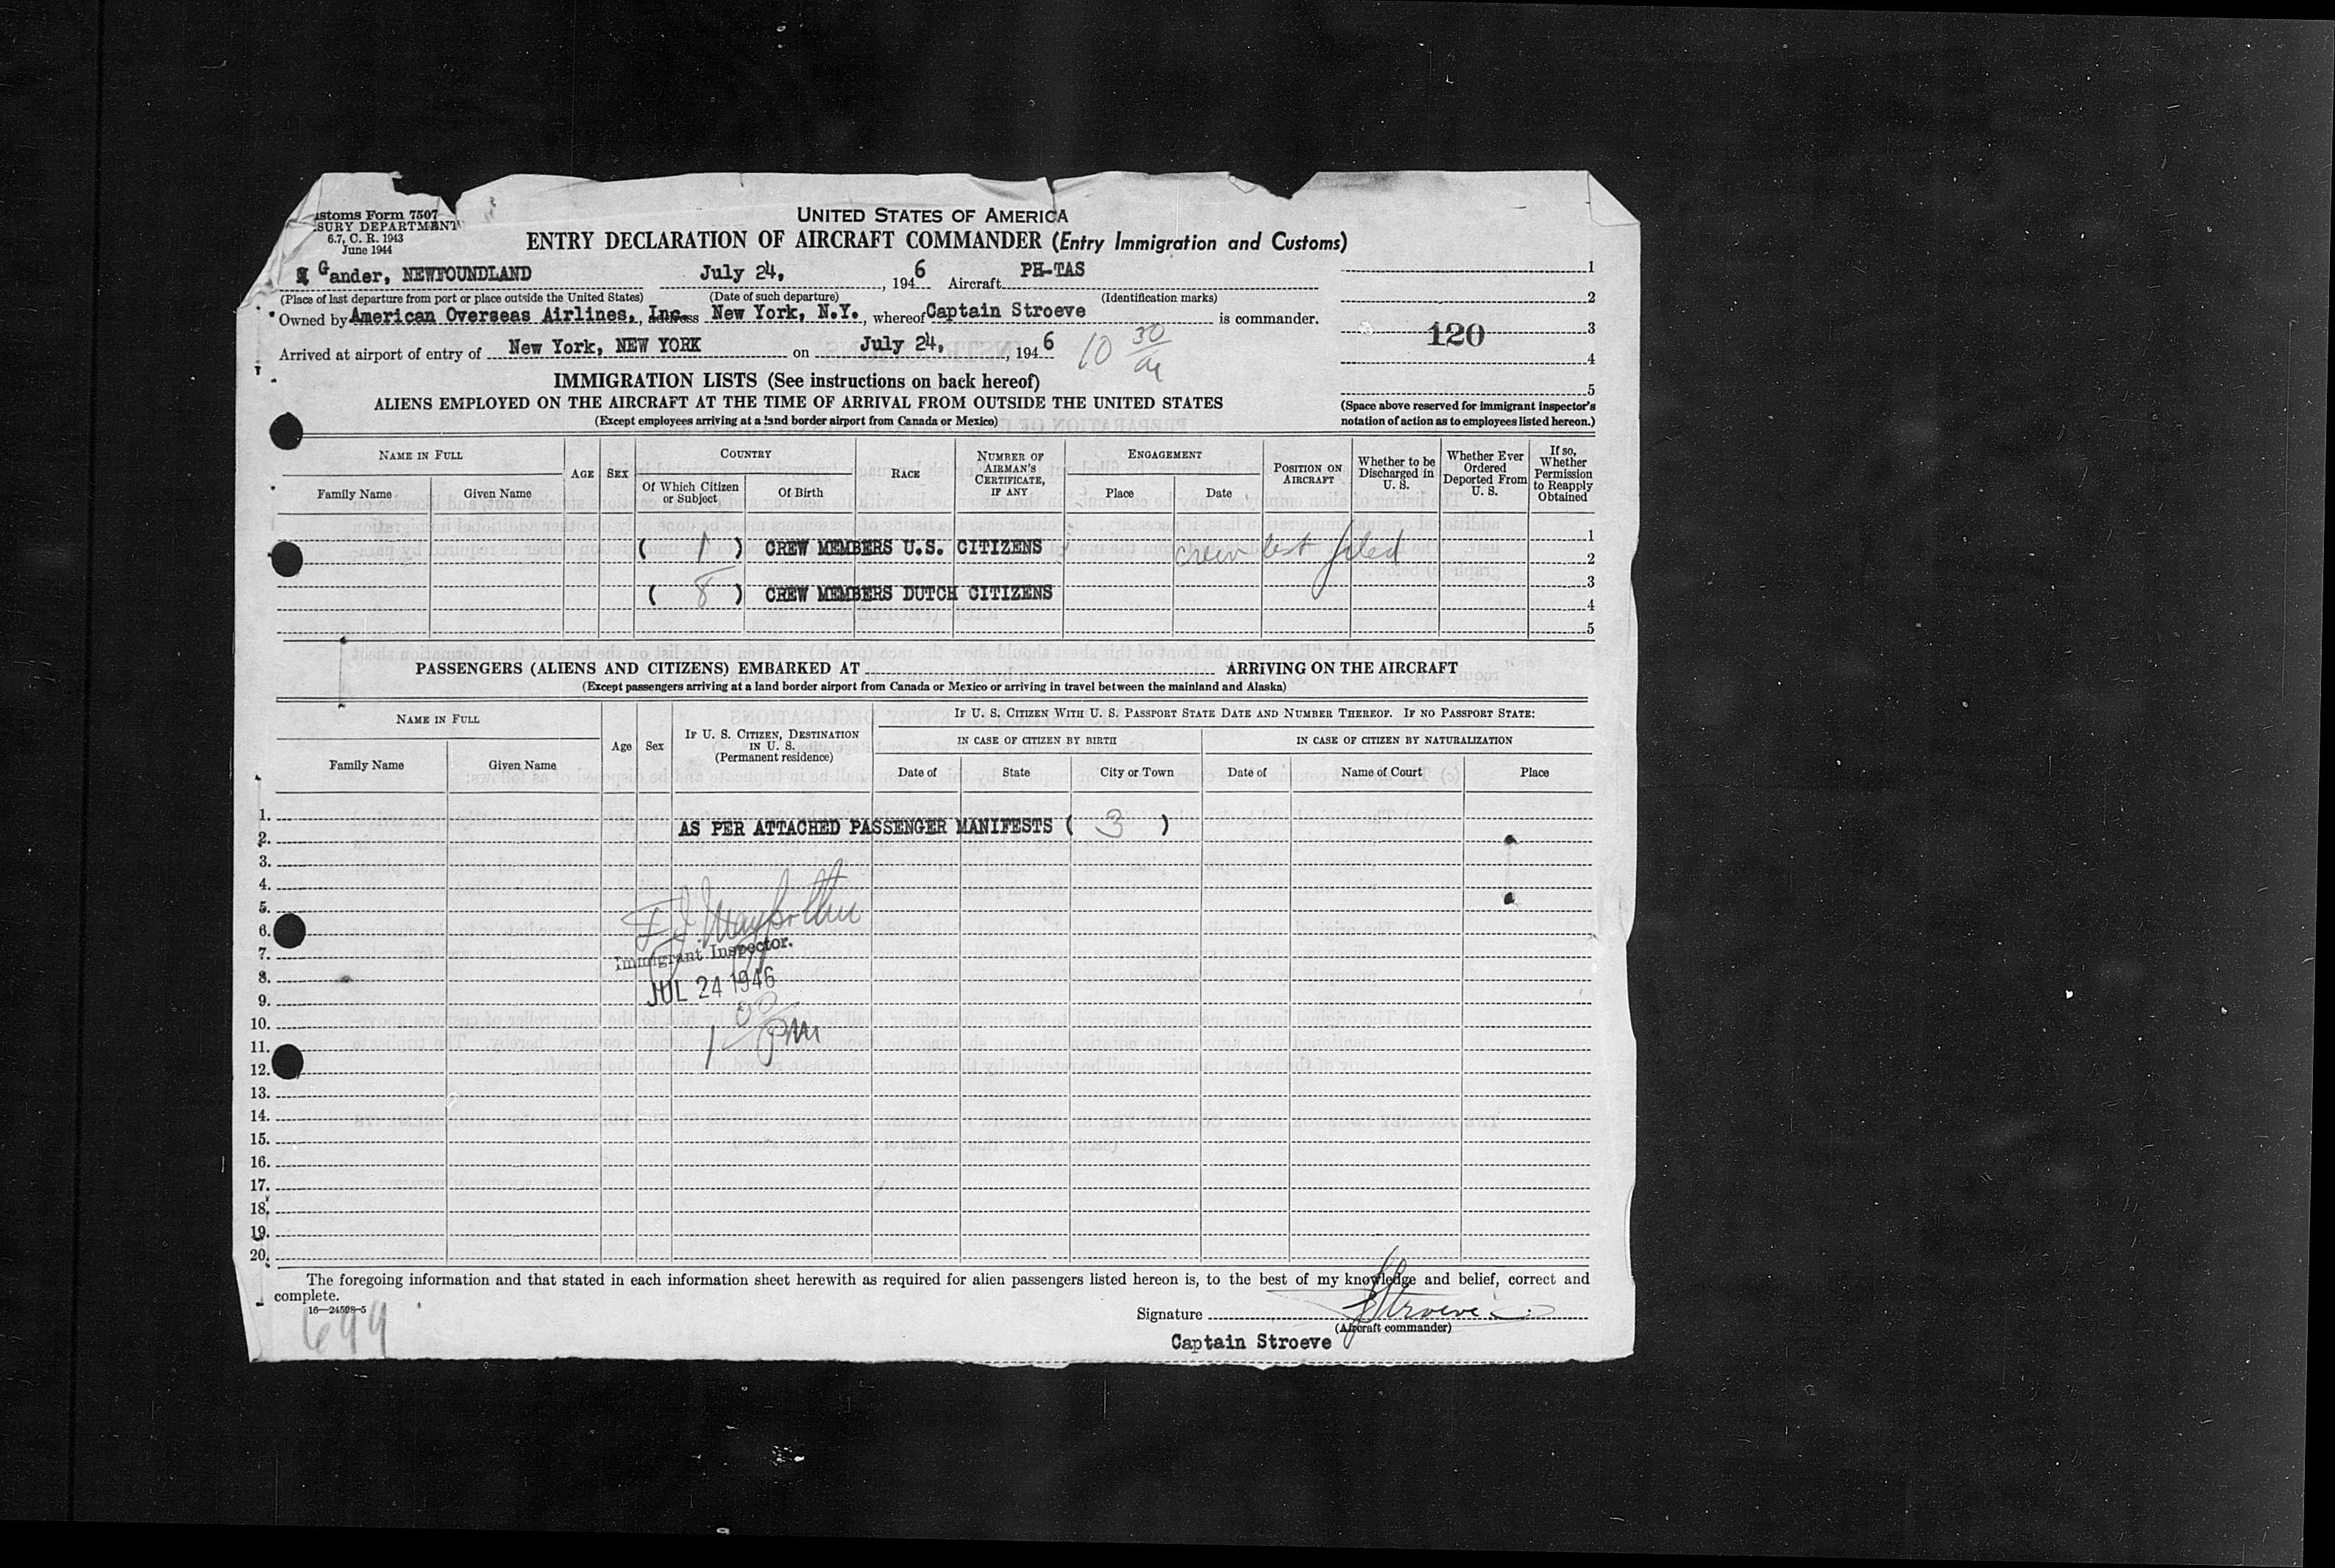 UNITED STATES OF AMERICA
stoms Form 7507
SURY DEPARTMENT
6.7, C. R. 1943
June 1944
ENTRY DECLARATION OF AIRCRAFT COMMANDER (Entry Immigration and Customs)
Gander, NEWFOUNDLAND July 24, 1946 Aircraft PH-TAS
(Place of last departure from port or place outside the United States) (Date of such departure) (Identification marks)
Owned by American Overseas Airlines, Inc. address New York, N.Y., whereof Captain Stroeve is commander.
Arrived at airport of entry of New York, NEW YORK on July 24, 1946 10 30
1
2
3
120
4
5
(Space above reserved for immigrant inspector's
notation of action as to employees listed hereon.)
IMMIGRATION LISTS (See instructions on back hereof)
ALIENS EMPLOYED ON THE AIRCRAFT AT THE TIME OF ARRIVAL FROM OUTSIDE THE UNITED STATES
(Except employees arriving at a land border airport from Canada or Mexico)
NAME IN FULL
Family Name Given Name
AGE SEX
COUNTRY
Of Which Citizen or Subject
Of Birth
RACE
NUMBER OF AIRMAN'S CERTIFICATE, IF ANY
ENGAGEMENT
Place Date
POSITION ON AIRCRAFT
Whether to be Discharged in U. S.
Whether Ever Ordered Deported From U. S.
If so, Whether Permission to Reapply Obtained
1
( 1 ) CREW MEMBERS U.S. CITIZENS crew list filed 2
3
( 8 ) CREW MEMBERS DUTCH CITIZENS 4
5
PASSENGERS (ALIENS AND CITIZENS) EMBARKED AT ARRIVING ON THE AIRCRAFT
(Except passengers arriving at a land border airport from Canada or Mexico or arriving in travel between the mainland and Alaska)
NAME IN FULL
Family Name Given Name
Age Sex
IF U. S. CITIZEN, DESTINATION IN U. S.
(Permanent residence)
IF U. S. CITIZEN WITH U. S. PASSPORT STATE DATE AND NUMBER THEREOF. IF NO PASSPORT STATE:
IN CASE OF CITIZEN BY BIRTH IN CASE OF CITIZEN BY NATURALIZATION
Date of State City or Town Date of Name of Court Place
1.
AS PER ATTACHED PASSENGER MANIFESTS ( 3 )
2.
3.
4.
5.
6.
7.
Immigrant Inspector.
8.
JUL 24 1946
9.
10.
1 00 PM
11.
12.
13.
14.
15.
16.
17.
18.
19.
20.
The foregoing information and that stated in each information sheet herewith as required for alien passengers listed hereon is, to the best of my knowledge and belief, correct and
complete.
16—24598-5
699
Signature Stroeve
(Aircraft commander)
Captain Stroeve